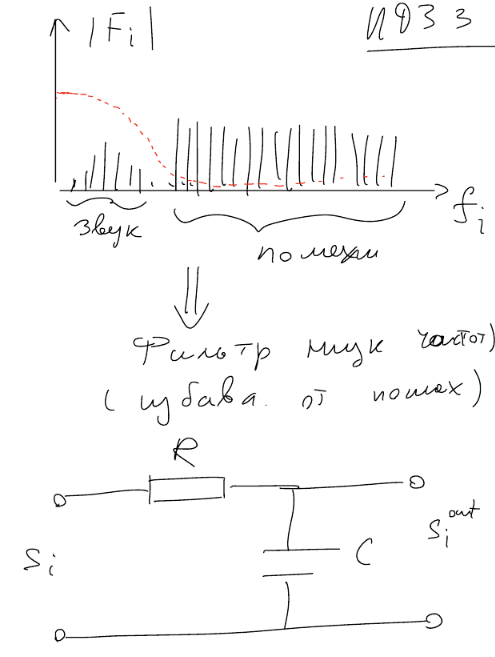 |Fi|
ИДЗ 3
fi
звук
помехи
Фильтр низк частот)
(избава. от помех)
R
Si
C
Si out